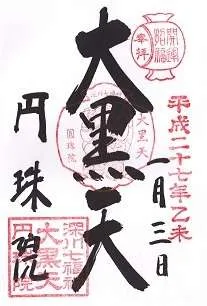 開運
招福
奉拝
平成二十七年乙未
一月三日
大黒天
大黒天
圓珠院
円珠院
深川七福神
大黒天
円珠院